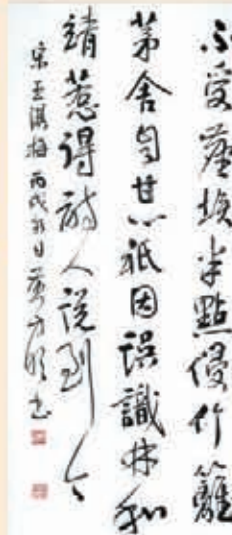 不受塵埃半點侵竹籬
茅舍自甘心祇因誤識林和
靖惹得詩人說到今
宋王淇梅丙戌秋日黃方順书